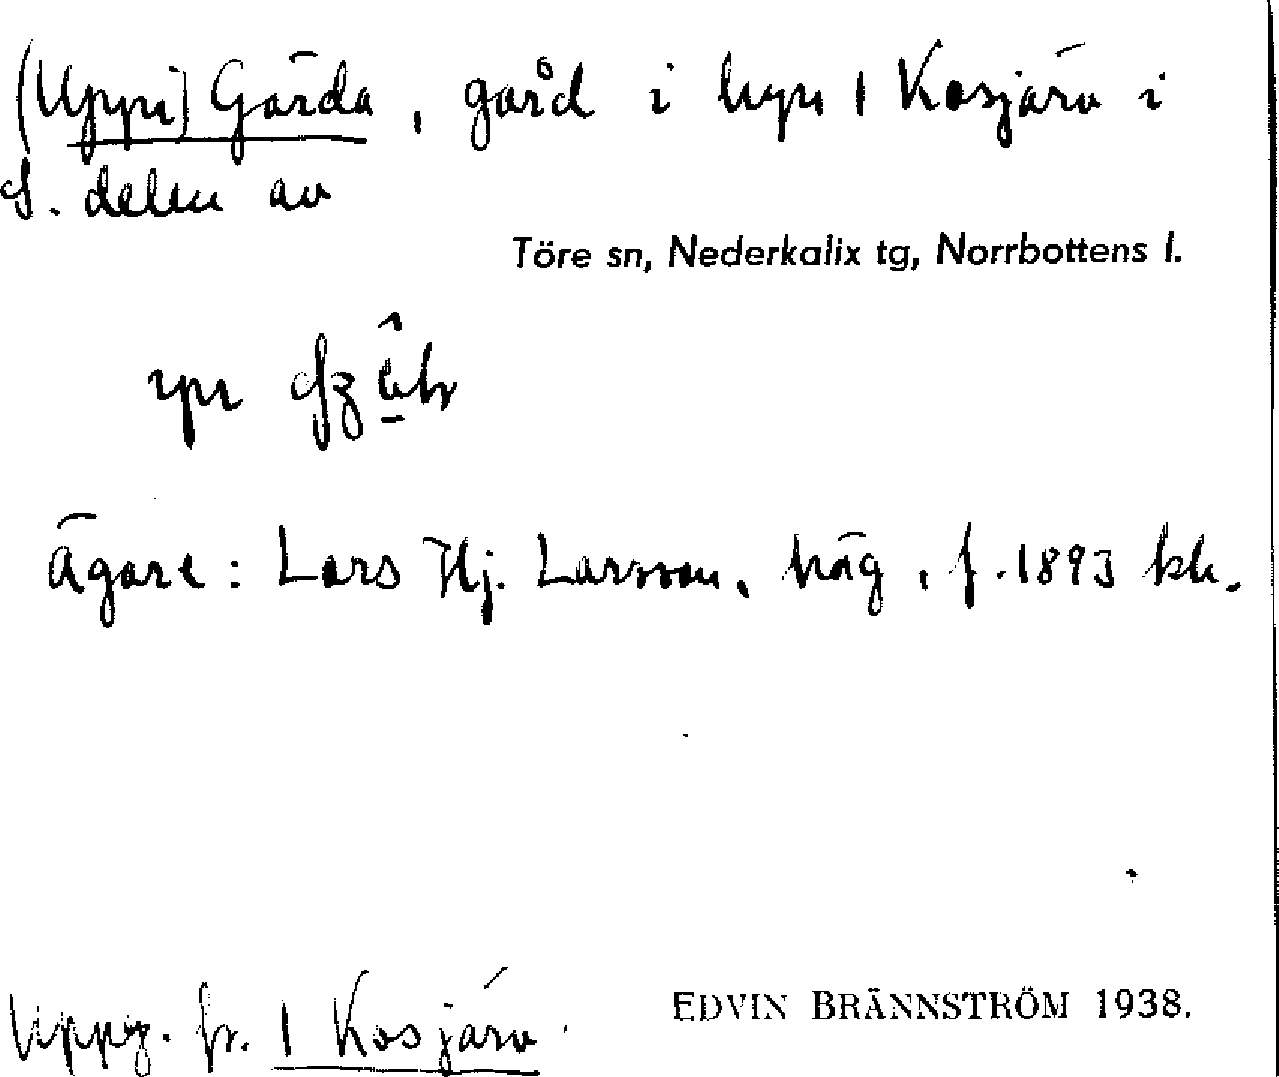 (Uppi) Gärda, gård i byn 1 Kosjärv i
S. delen av
Töre sn, Nederkalix tg, Norrbottens l.
Ägare: Lars Hj. Larsson, häg, f. 1893 kh.
Uppg. fr. 1 Kosjärv
EDVIN BRÄNNSTRÖM 1938.